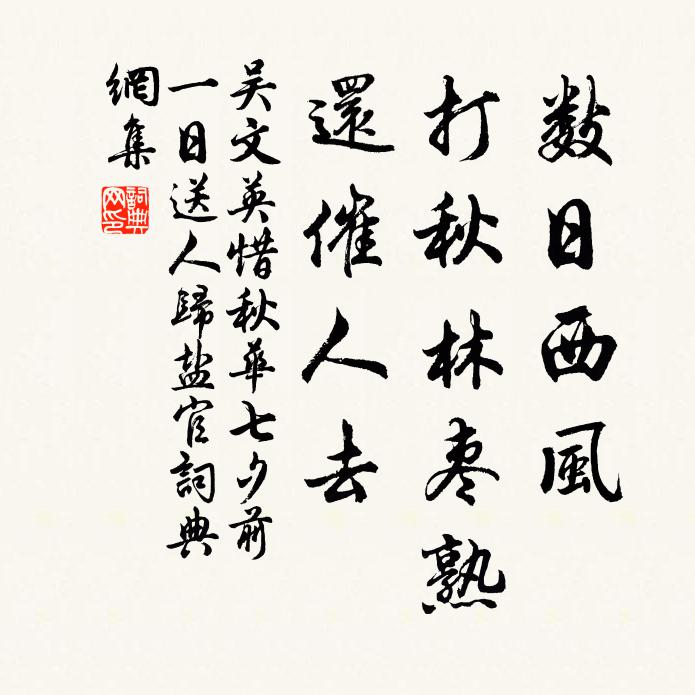 数日西風
打秋林枣熟
還催人去
吴文英惜秋華七夕前
一日送人歸盐官詞典
網集
詞典网印